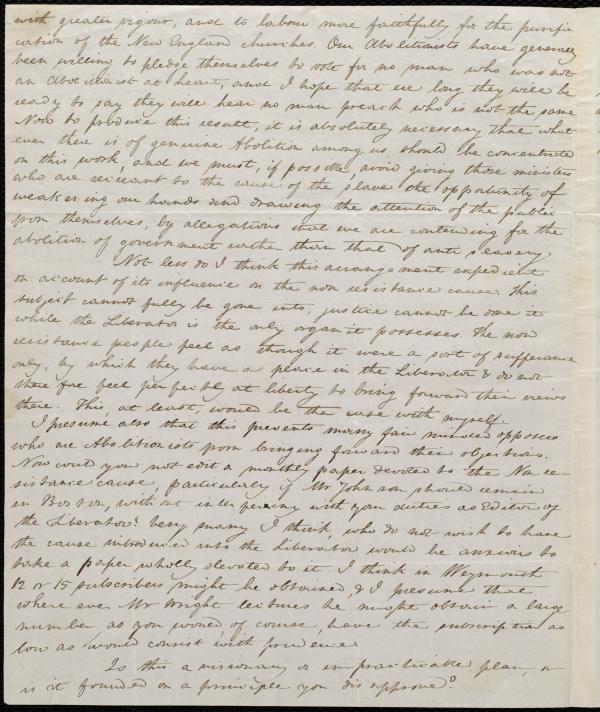 with greater vigour, and to labour more faithfully for the purifi
cation of the New England churches. Our Abolitionists have generally
been willing to pledge themselves to vote for no man who was not
an Abolitionist at heart, and I hope that ere long they will be
ready to say they will hear no man preach who is not the same
Now to produce this result, it is absolutely necessary that what
ever there is of genuine Abolition among us, should be concentrated
on this work, and we must, if possible, avoid giving those ministers
who are recreant to the cause of the slave the opportunity of
weakening our hands and drawing the attention of the public
from themselves, by allegations that we are contending for the
abolition of government rather than that of anti slavery
Not less do I think this arrangement expedient
on account of its influence on the non resistance cause. This
subject cannot fully be gone into, justice cannot be done it
while the Liberator is the only organ it possesses. The non
resistance people feel as though it were a sort of sufferance
only, by which they have a place in the Liberator & do not
therefore feel perfectly at liberty to bring forward their views
there. This, at least, would be the case with myself.
I presume also that this prevents many fair minded opposers
who are Abolitionists from bringing forward their objections.
Now could you not edit a monthly paper devoted to the Non re-
sistance cause, particularly if Mr Johnson should remain
in Boston, without interfering with your duties as Editor of
the Liberator? Very many I think, who do not wish to have
the cause introduced into the Liberator would be anxious to
take a paper wholly devoted to it I think in Weymouth
12 or 15 subscribers might be obtained, & I presume that
where ever Mr Wright lectures he might obtain a large
number as you would, of course, have the subscription as
low as would consist with prudence
Is this a visionary or impracticable plan, or
is it founded on a principle you disapprove?